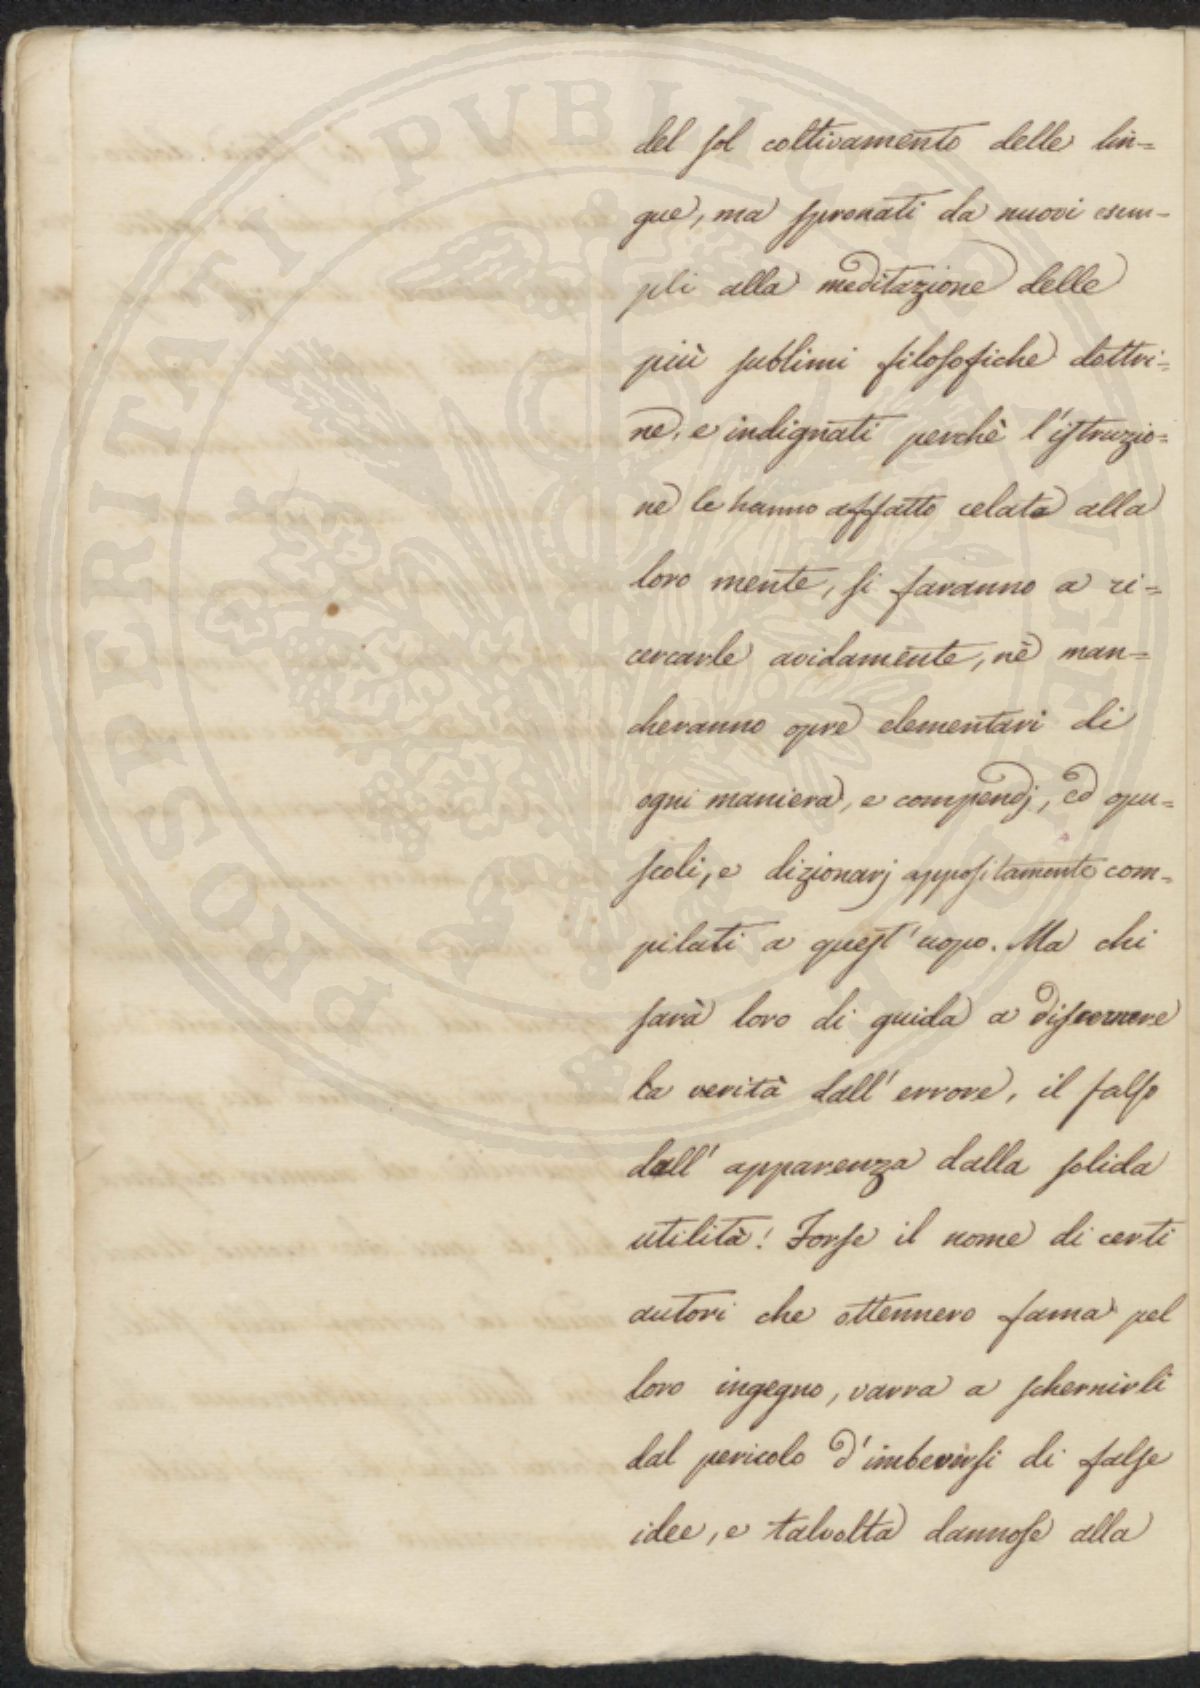 del sol coltivamento delle lin=
gue, ma spronati da nuovi esem-
pli alla meditazione delle
più sublimi filosofiche dottri=
ne, e indignati perchè l'istruzio=
ne le hanno affatto celate alla
loro mente, si faranno a ri=
cercarle avidamente, nè man=
cheranno opre elementari di
ogni maniera, e compendj, ed opu=
scoli, e dizionarj appositamente com=
pilati a quest'uopo. Ma chi
sarà loro di guida a discernere
la verità dall'errore, il falso
dall'apparenza dalla solida
utilità! Forse il nome di certi
autori che ottennero fama pel
loro ingegno, varra a schernirli
dal pericolo d'imbeversi di false
idee, e talvolta dannose alla
PROSPERITATI PUBLICAE AUGENDAE